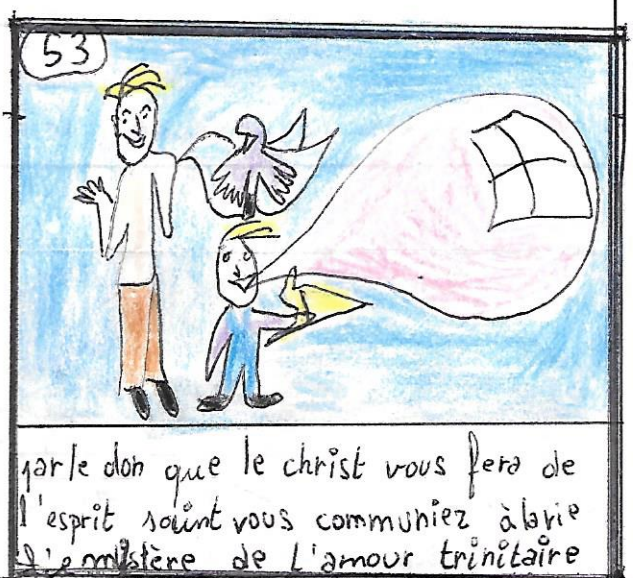 53
par le don que le christ vous fera de
l'esprit saint vous communiez à la vie
mistère de l'amour trinitaire